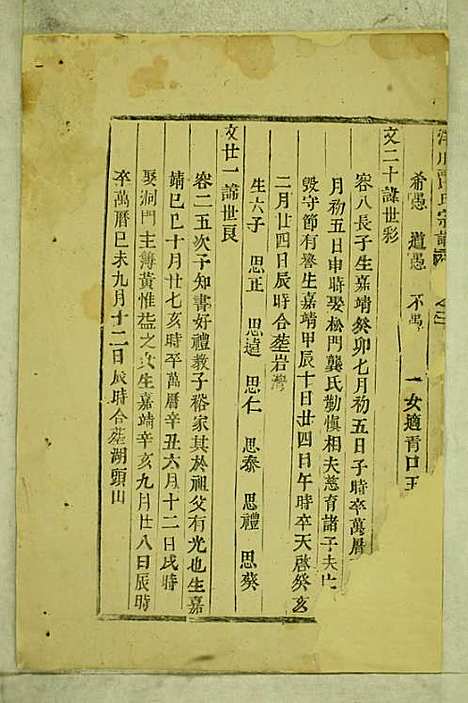 氏宗譜
希愚 道愚 不萬 一女適青口王
文二十諱世彩
容八長子生嘉靖癸卯七月初五日子時卒萬曆
月初五日申時娶松門龔氏勤慎相夫慈育諸子夫亡
毀守節有譽生嘉靖甲辰十日廿四日午時卒天啓癸亥
二月廿四日辰時合塟岩灣
生六子 思正 思遠 思仁 思泰 思禮 思葵
文廿一諱世良
容二五次子知書好禮教子裕家其於祖父有光也生嘉
靖己巳十月廿七亥時卒萬曆辛丑六月十二日戌時
娶洞門主簿黃惟益之女生嘉靖辛亥九月廿八日辰時
卒萬曆己未九月十二日辰時合塟湖頭山